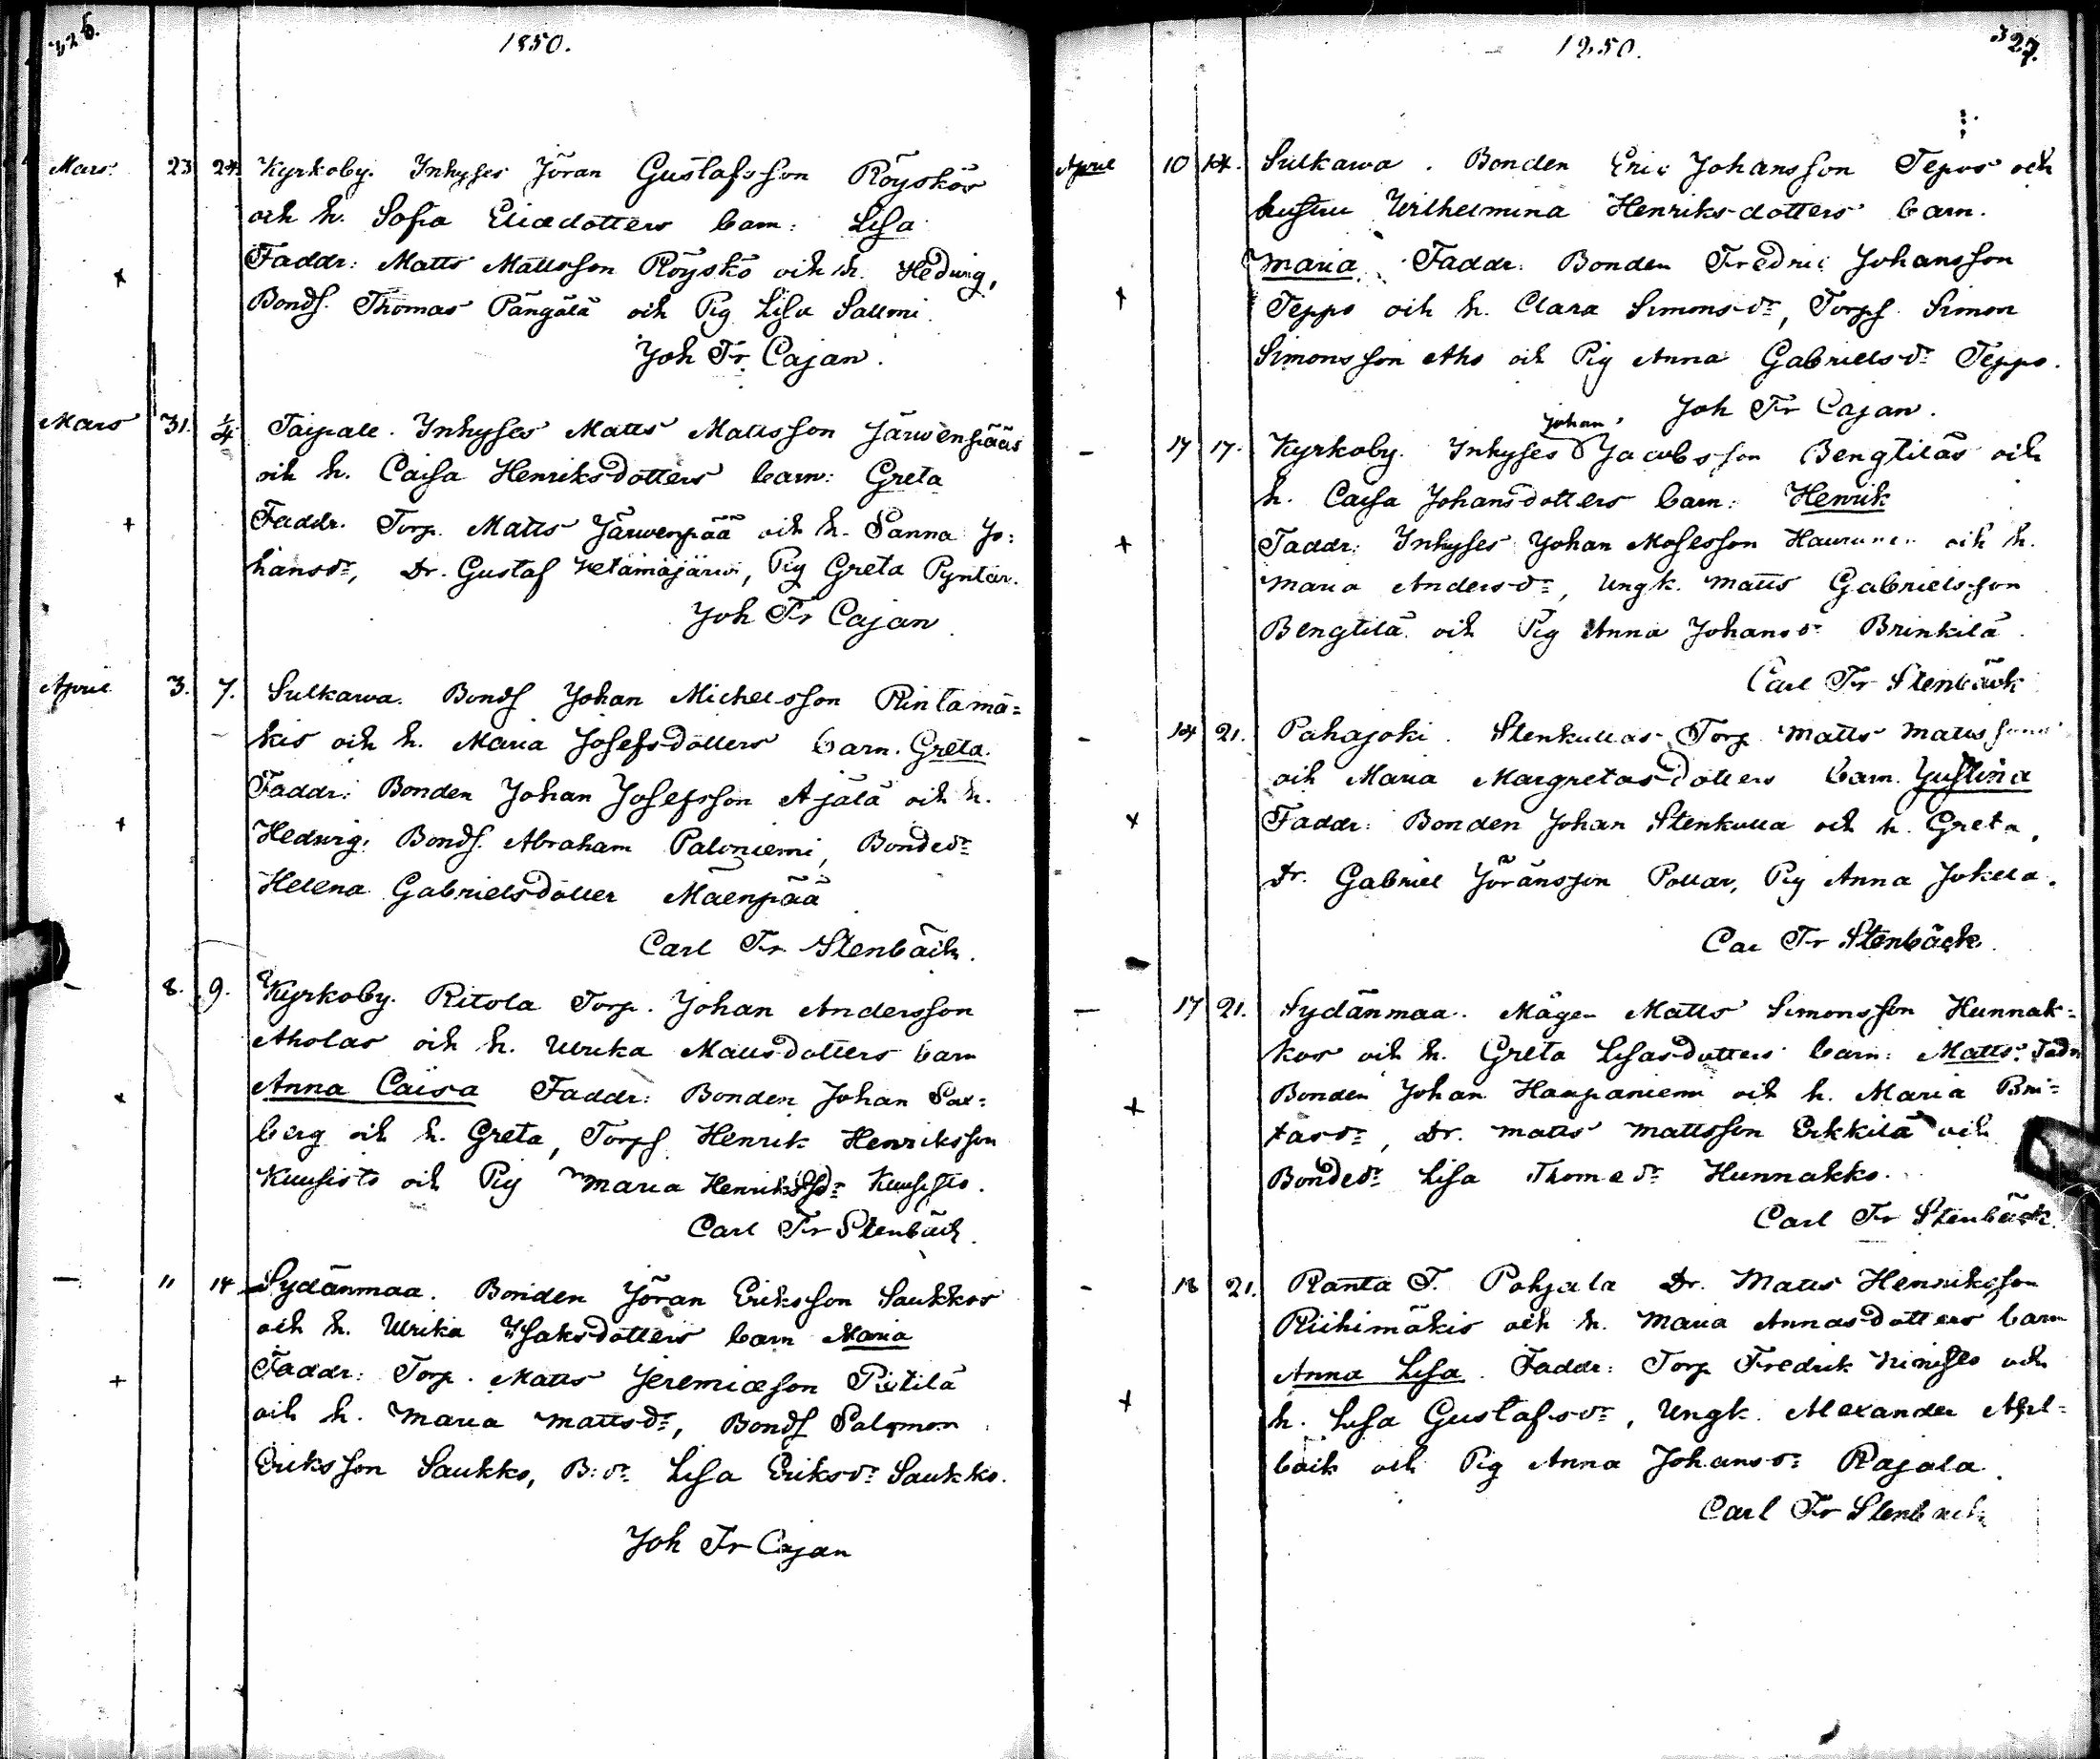 326.
1850.
Mars. 23 24. Kyrkoby. Inhyses Jöran Gustafsson Röyskös
och h. Sofia Eliædotters barn: Lisa
Faddr: Matts Mattsson Röyskö och h. Hedwig,
Bonds. Thomas Pängälä och Pig Lisa Sallmi.
Joh Fr. Cajan.
Mars 31. 1/4 Taipale. Inhyses Matts Mattsson Järwenpääs
och h. Caisa Henriksdotters barn: Greta
Faddr. Torp. Matts Järwenpää och h. Sanna Jo:
hansdr, Dr. Gustaf Hetamäjärwi, Pig Greta Pyntär.
Joh Fr Cajan
April 3. 7. Sulkawa. Bonds Johan Michelsson Rintamä=
kis och h. Maria Josefsdotters barn. Greta.
Faddr: Bonden Johan Josefsson Ajälä och h.
Hedwig. Bonds. Abraham Paloniemi, Bondedr
Helena Gabrielsdotter Mäenpää
Carl Fr Stenbäck.
– 8. 9. Kyrkoby. Ritola Torp. Johan Andersson
Aholas och h. Ulrika Mattsdotters barn
Anna Caisa Faddr: Bonden Johan Sax=
berg och h. Greta, Torps Henrik Henriksson
Kuusisto och Pig Maria Henriksdr Kuusisto.
Carl Fr Stenbäck.
– 11 14 Sydänmaa. Bonden Jöran Eriksson Saukkos
och h. Ulrika Isaksdotters barn Maria
Faddr: Torp. Matts Jeremiæson Pistilä
och h. Maria Mattsdr, Bonds Salomon
Eriksson Saukko, B:dr Lisa Eriksdr Saukko.
Joh Fr Cajan
1850.
327.
April 10 14. Sulkawa. Bonden Eric Johansson Tepos och
hustru Wilhelmina Henriksdotters barn.
Maria. Faddr: Bonden Fredric Johansson
Teppo och h. Clara Simonsdr, Torps. Simon
Simonsson Aho och Pig Anna Gabrielsdr Teppo.
Joh Fr Cajan.
– 17 17. Kyrkoby. Inhyses Johan Jacobsson Bengtiläs och
h. Caisa Johansdotters barn: Henrik
Faddr: Inhyses Johan Mosesson och h.
Maria Andersdr, Ungk. Matts Gabrielsson
Bengtilä och Pig Anna Johansdr Brinkilä.
Carl Fr Stenbäck
– 14 21. Pahajoki. Stenkullas Torp. Matts Mattssons
och Maria Margretasdotters barn. Justina
Faddr: Bonden Johan Stenkulla och h. Greta,
Dr. Gabriel Jöransson Pollar, Pig Anna Jokela.
Car Fr Stenbäck.
– 17 21. Sydänmaa. Mågen Matts Simonsson Hunnak=
kos och h. Greta Lisasdotters barn: Matts. Fadr
Bonden Johan Haapaniemi och h. Maria Bri=
tasdr, Dr. Matts Mattsson Erkkilä och
Bondedr Lisa Thomedr Hunnakko.
Carl Fr Stenbäck.
– 18 21. Ranta T. Pohjala Dr. Matts Henriksson
Riihimäkis och h. Maria Annasdotters barn
Anna Lisa. Faddr: Torp Fredrik Niinisto och
h. Lisa Gustafsdr, Ungk. Alexander Ahl=
bäck och Pig Anna Johansdr Rajala.
Carl Fr Stenbäck